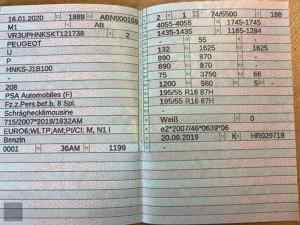 16.01.2020 1889
M1 AB
VR3UPHNKSKT121738 2
PEUGEOT
U
P
HNKS-J1B100
-
208
PSA Automobiles (F)
Fz.z.Pers.bef.b. 8 Spl.
Schräghecklimousine
715/2007*2018/1832AM
EURO6;WLTP;AM;PI/CI; M, N1 I
Benzin
0001 36AM 1199
2 1 74/5500 188
4055-4055 1745-1745
1435-1435 1165-1284
- 55 -
132 1625 1625
890 870 -
890 870 -
75 3750 66
1200 580 5 -
195/55 R16 87H
195/55 R16 87H
-
-
Weiß 0
e2*2007/46*0639*06
20.09.2019 K